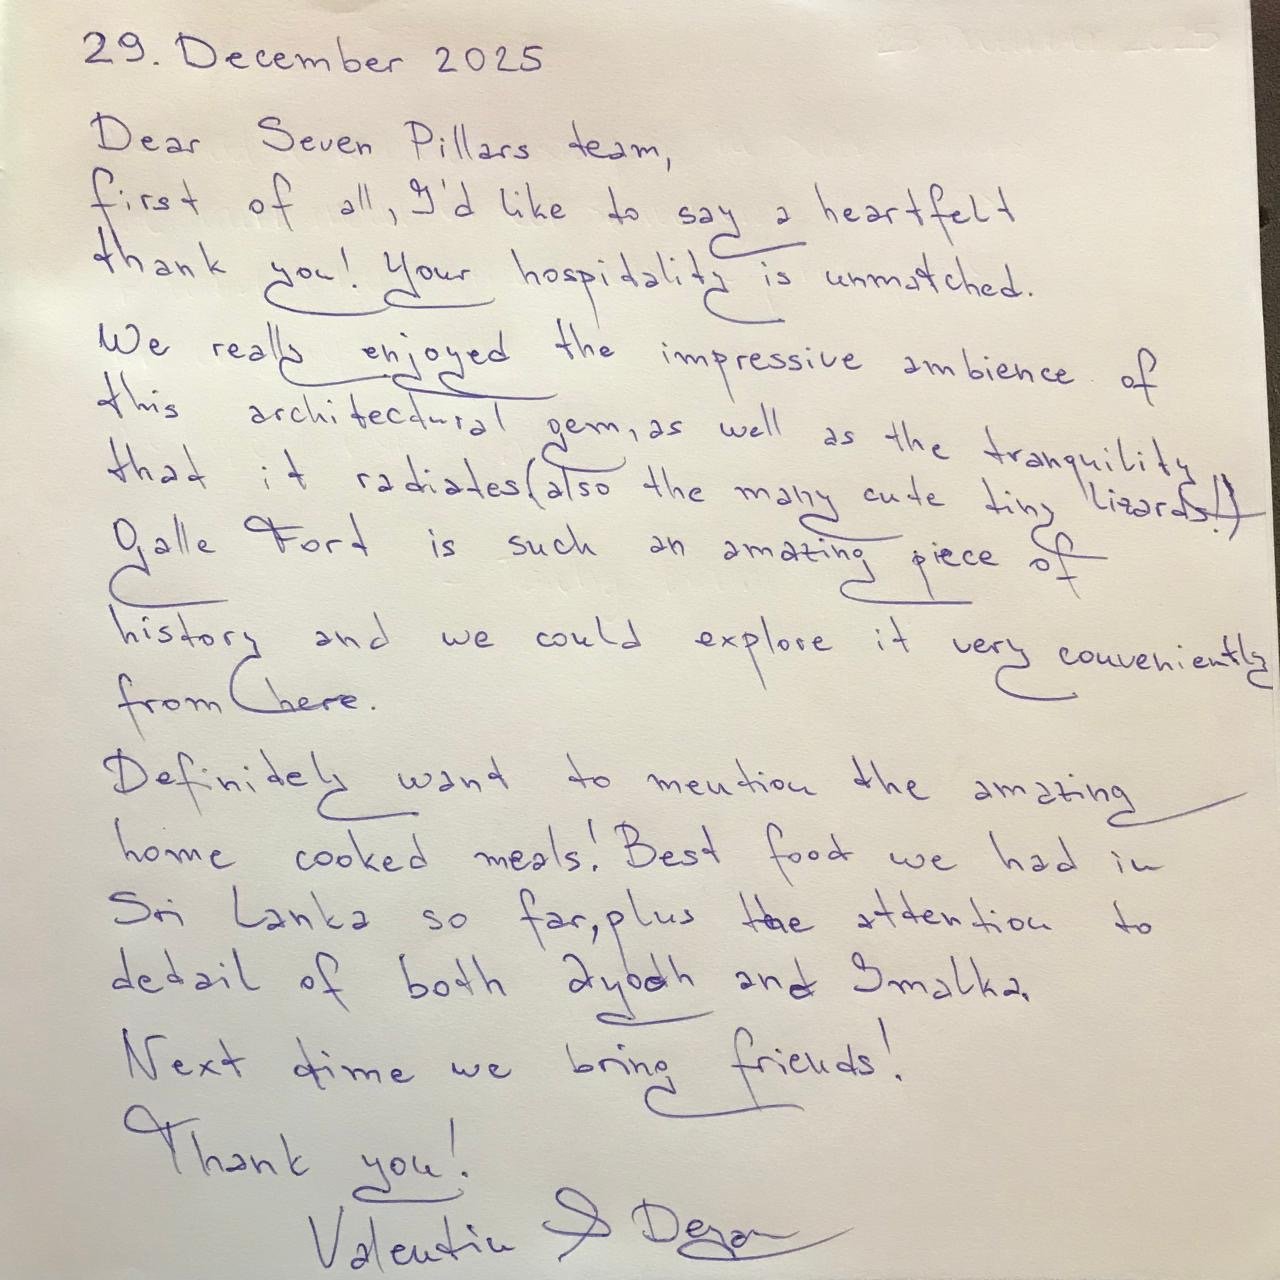 29. December 2025
Dear Seven Pillars team,
first of all, I'd like to say a heartfelt
thank you! Your hospitality is unmatched.
We really enjoyed the impressive ambience of
this architectural gem, as well as the tranquility
that it radiates (also the many cute tiny lizards!)
Galle Fort is such an amazing piece of
history and we could explore it very conveniently
from here.
Definitely want to mention the amazing
home cooked meals! Best food we had in
Sri Lanka so far, plus the attention to
detail of both Ayodh and Imalka.
Next time we bring friends!
Thank you!
Valentin & Dejan